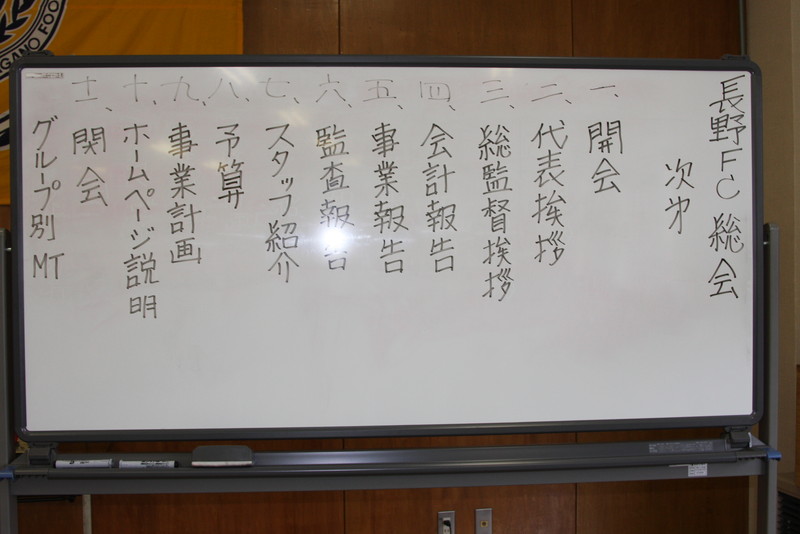 長野FC 総会
次才
一、開会
二、代表挨拶
三、総監督挨拶
四、会計報告
五、事業報告
六、監査報告
七、スタッフ紹介
八、予算
九、事業計画
十、ホームページ説明
十一、関会
グループ別 MT
AGANO FOO